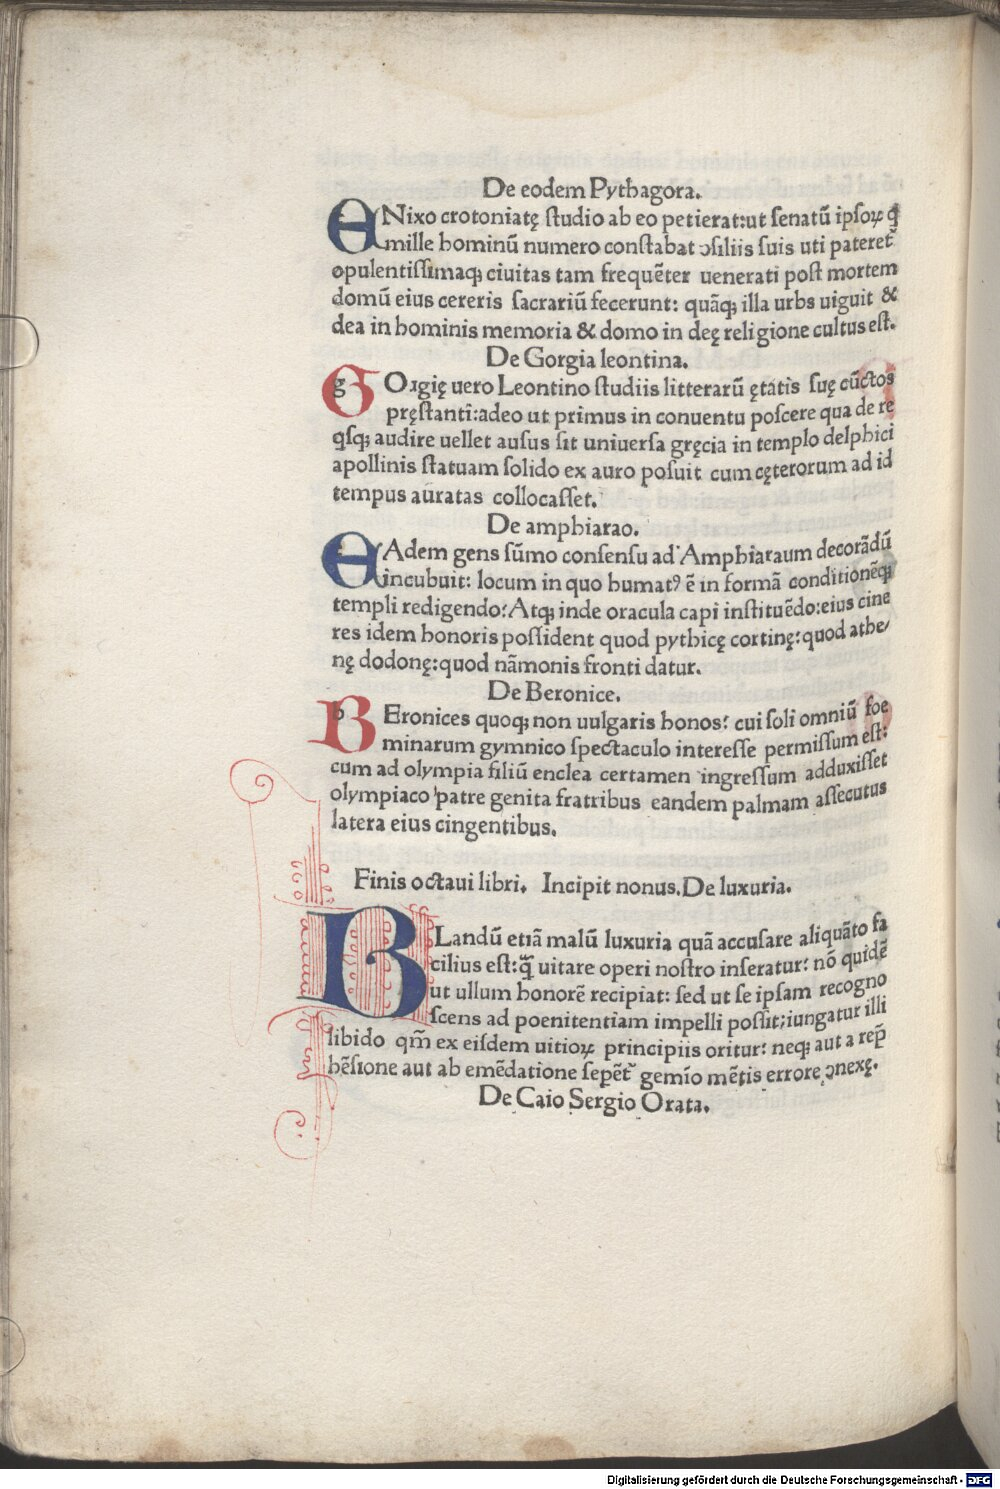 De eodem Pythagora.
ENixo crotoniatę ſtudio ab eo petierat:ut ſenatū ipſoꝝ q̄
mille hominū numero conſtabat ↄſiliis ſuis uti pateret᷑
opulentiſſimaqꝫ ciuitas tam frequēter uenerati poſt mortem
domū eius cereris ſacrariū fecerunt: quāqꝫ illa urbs uiguit &
dea in hominis memoria & domo in deę religione cultus eſt.
De Gorgia leontina.
GOꝛgię uero Leontino ſtudiis litterarū ętatis ſuę cūctos
pręſtanti:adeo ut primus in conuentu poſcere qua de re
qſqꝫ audire uellet auſus ſit uniuerſa gręcia in templo delphici
apollinis ſtatuam ſolido ex auro poſuit cum cęterorum ad id
tempus auratas collocaſſet.
De amphiarao.
EAdem gens ſūmo conſenſu ad Amphiaraum decorādū
incubuit: locum in quo humatꝰ ē in formā conditionēqꝫ
templi redigendo:Atqꝫ inde oracula capi inſtituēdo:eius cine
res idem honoris poſſident quod pythicę cortinę:quod athe/
nę dodonę:quod nāmonis fronti datur.
De Beronice.
BEronices quoqꝫ non uulgaris honos: cui ſoli omniū foe
minarum gymnico ſpectaculo intereſſe permiſſum eſt:
cum ad olympia filiū enclea certamen ingreſſum adduxiſſet
olympiaco patre genita fratribus eandem palmam aſſecutus
latera eius cingentibus.
Finis octaui libri. Incipit nonus. De luxuria.
BLandū etiā malū luxuria quā accuſare aliquāto fa
cilius eſt:q̄ uitare operi noſtro inſeratur: nō quidē
ut ullum honorē recipiat: ſed ut ſe ipſam recogno
ſcens ad poenitentiam impelli poſſit:iungatur illi
libido qm̄ ex eiſdem uitioꝝ principiis oritur: neqꝫ aut a rep̄
hēſione aut ab emēdatione ſepēt᷑ gemīo mētis errore ↄnexę.
De Caio Sergio Orata.
Digitalisierung gefördert durch die Deutsche Forschungsgemeinschaft - DFG